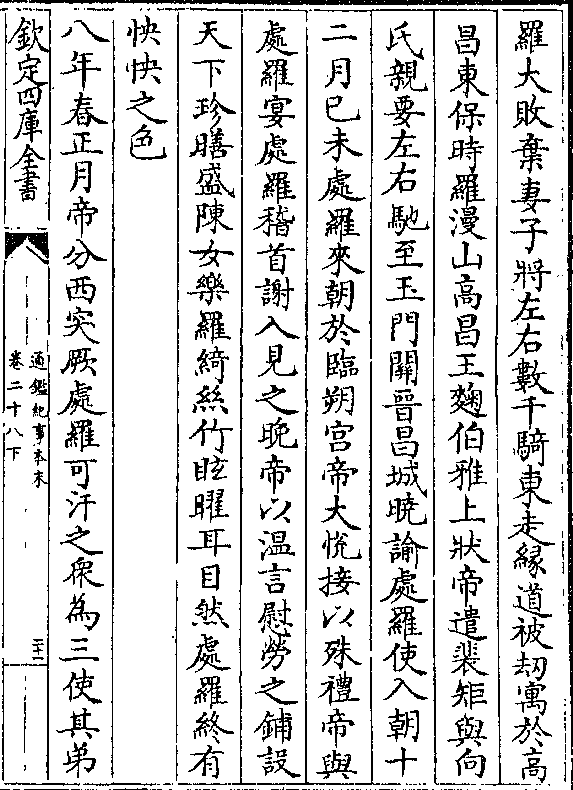 羅大敗棄妻子將左右數千騎東走緣道被刼寓於高
昌東保時羅漫山高昌王麴伯雅上狀帝遣裴矩與向
氏親要左右馳至玉門關晉昌城曉諭處羅使入朝十
二月已未處羅來朝於臨朔宫帝大悅接以殊禮帝與
處羅宴處羅稽首謝入見之晚帝以温言慰勞之鋪設
天下珍膳盛陳女樂羅綺絲竹眩曜耳目然處羅終有
怏怏之色
八年春正月帝分西突厥處羅可汗之衆為三使其弟
欽定四庫全書
通鑑紀事本末
卷二十八下
二十一